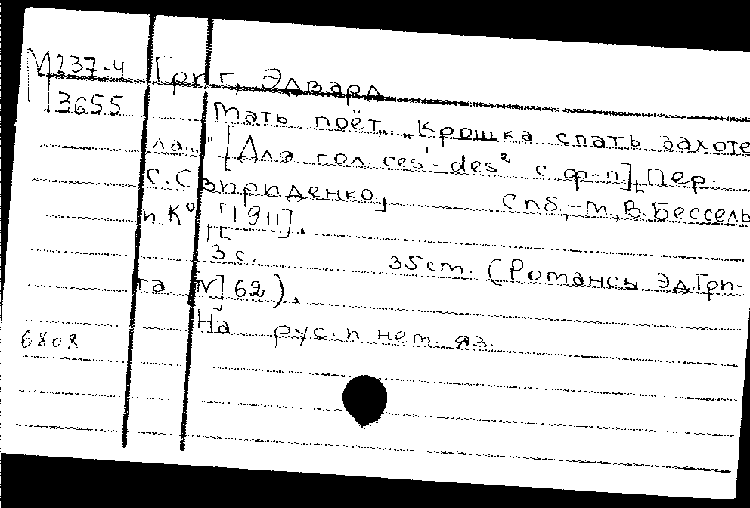 М237-4 Григ, Эдвард
3655
Мать поёт. „Крошка спать захоте
ла..." [Для гол. ces¹-des² с ф-п], Пер.
С. Свириденко, Спб,-М, В. Бессель
и К° [1911].
3 с. 35 cm. (Романсы Эд. Гри-
га №62).
На рус. и нем. яз.
6808